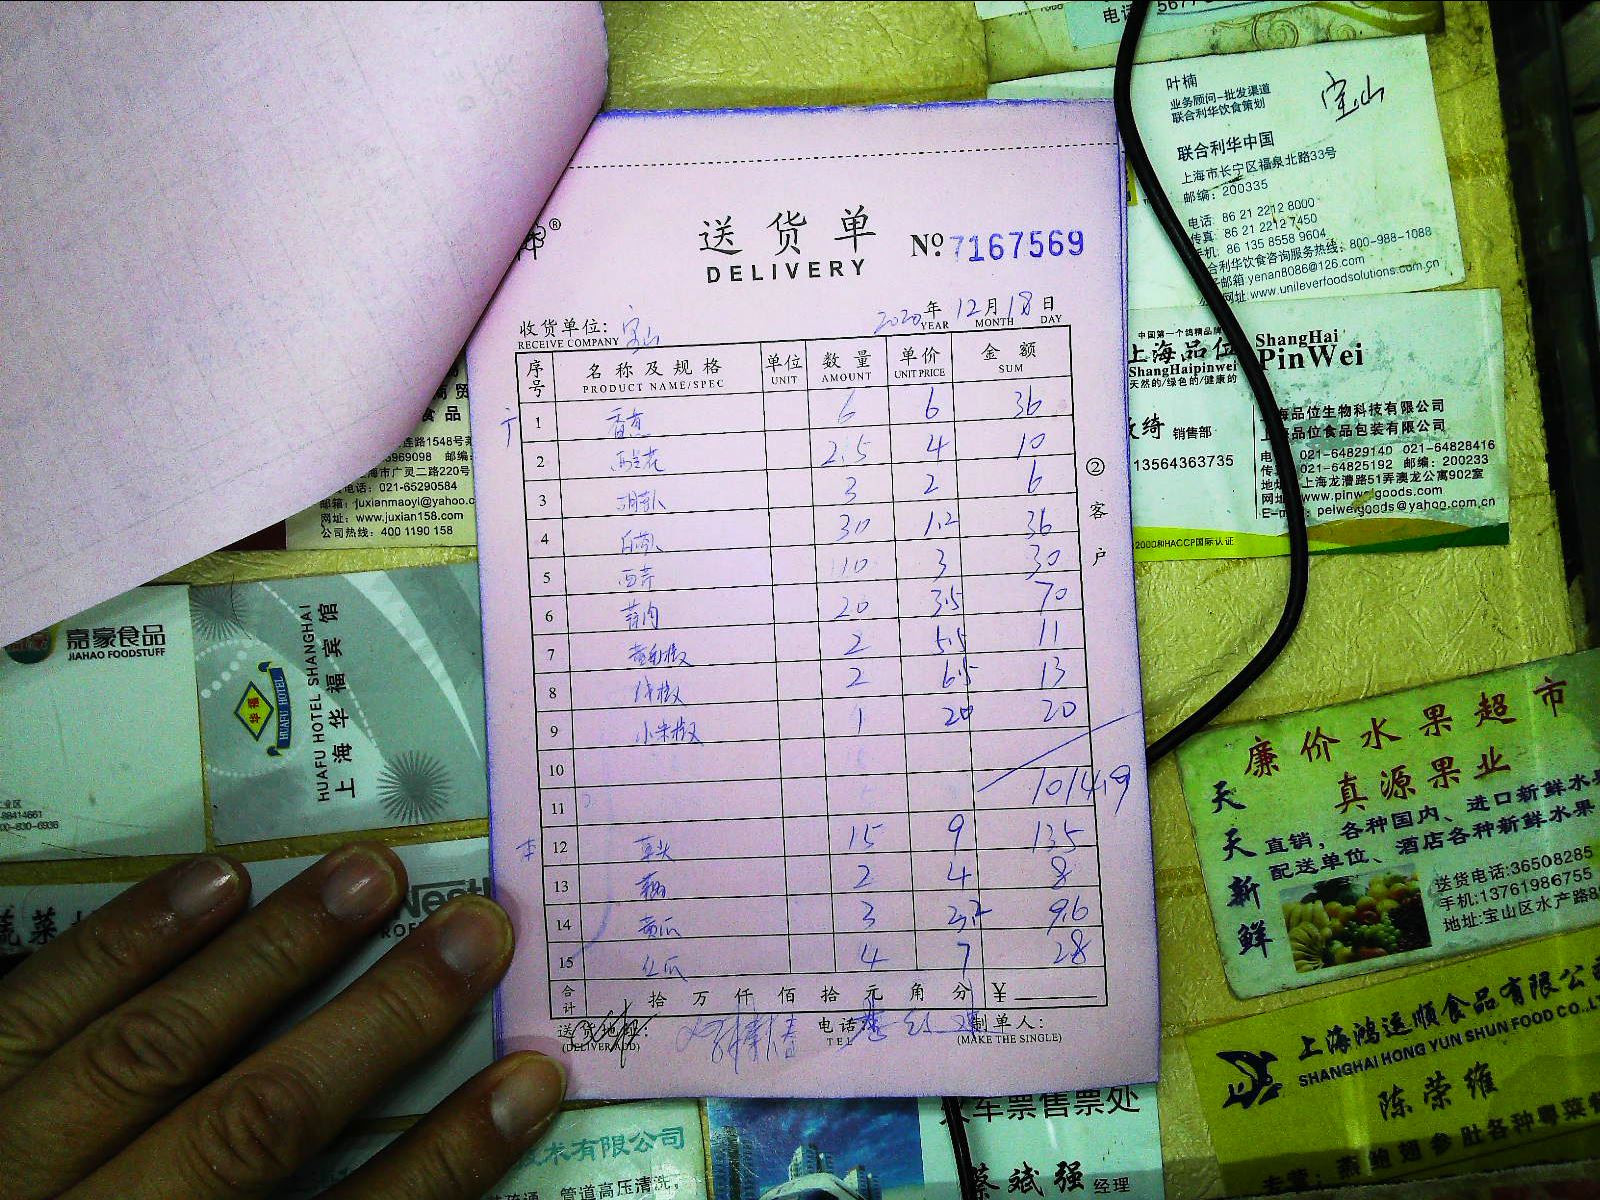 电话 567
叶楠
业务顾问-批发渠道
联合利华饮食策划
宝山
联合利华中国
上海市长宁区福泉北路33号
邮编: 200335
电话: 86 21 2212 8000
传真: 86 21 2212 7450
手机: 86 135 8558 9604
合利华饮食咨询服务热线: 800-988-1088
子邮箱 yenan8086@126.com
网址: www.unileverfoodsolutions.com.cn
送货单
DELIVERY
No. 7167569
收货单位: 宝山
RECEIVE COMPANY
2020年 12月 18日
YEAR MONTH DAY
序号 名称及规格 单位 数量 单价 金额
PRODUCT NAME/SPEC UNIT AMOUNT UNIT PRICE SUM
1 香蕉 6 6 36
2 西兰花 2.5 4 10
3 3 2 6
4 30 1.2 36
5 西芹 10 3 30
6 20 3.5 70
7 2 5.5 11
8 2 6.5 13
9 小米椒 1 20 20
10
11 1014.9
12 草头 15 9 135
13 2 4 8
14 黄瓜 3 3.2 9.6
15 4 7 28
合计 拾 万 仟 佰 拾 元 角 分 ¥
送货地址:
(DELIVER ADD)
电话
TEL
制单人:
(MAKE THE SINGLE)
②客户
中国第一个鸽精品牌
上海品位
ShangHaipinwei
天然的/绿色的/健康的
ShangHai
PinWei
绮 销售部
13564363735
海品位生物科技有限公司
上海品位食品包装有限公司
电 021-64829140 021-64828416
传 021-64825192 邮编: 200233
地址 上海龙漕路51弄澳龙公寓902室
网址: www.pinweigoods.com
E-m peiweigoods@yahoo.com.cn
2000和HACCP国际认证
商贸
食品
连路1548号
5969098 邮编:
海市广灵二路220号
电话: 021-65290584
邮箱: juxianmaoyi@yahoo.c
网址: www.juxian158.com
公司热线: 400 1190 158
嘉豪食品
JIAHAO FOODSTUFF
业区
88414661
00-830-6936
华福
HUAFU HOTEL
HUAFU HOTEL SHANGHAI
上海华福宾馆
Nestl
蔬菜
廉价水果超市
真源果业
天天新鲜
直销，各种国内、进口新鲜水果
配送单位、酒店各种新鲜水果
送货电话:36508285
手机:13761986755
地址:宝山区水产路8
上海鸿运顺食品有限公司
SHANGHAI HONG YUN SHUN FOOD CO.,LT
陈荣维
主营: 燕鲍翅参肚各种粤菜
技术有限公司
疏通、管道高压清洗,
火车票售票处
蔡斌强 经理